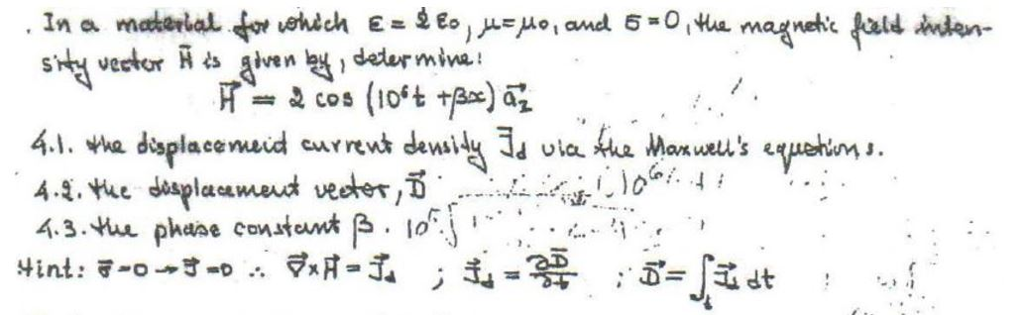 . In a material for which ε = 2ε₀, μ=μ₀, and σ=0, the magnetic field inten-
sity vector H⃗ is given by, determine:
H⃗ = 2 cos (10⁶t + βx) a⃗z
4.1. the displacemeid current density J⃗d via the Maxwell's equations.
4.2. the displacement vector, D⃗
10⁶
4.3. the phase constant β.
Hint: σ=0 → J⃗=0 ∴ ∇⃗×H⃗ = J⃗d ; J⃗d = ∂D̄/∂t ; D⃗ = ∫t J⃗d dt